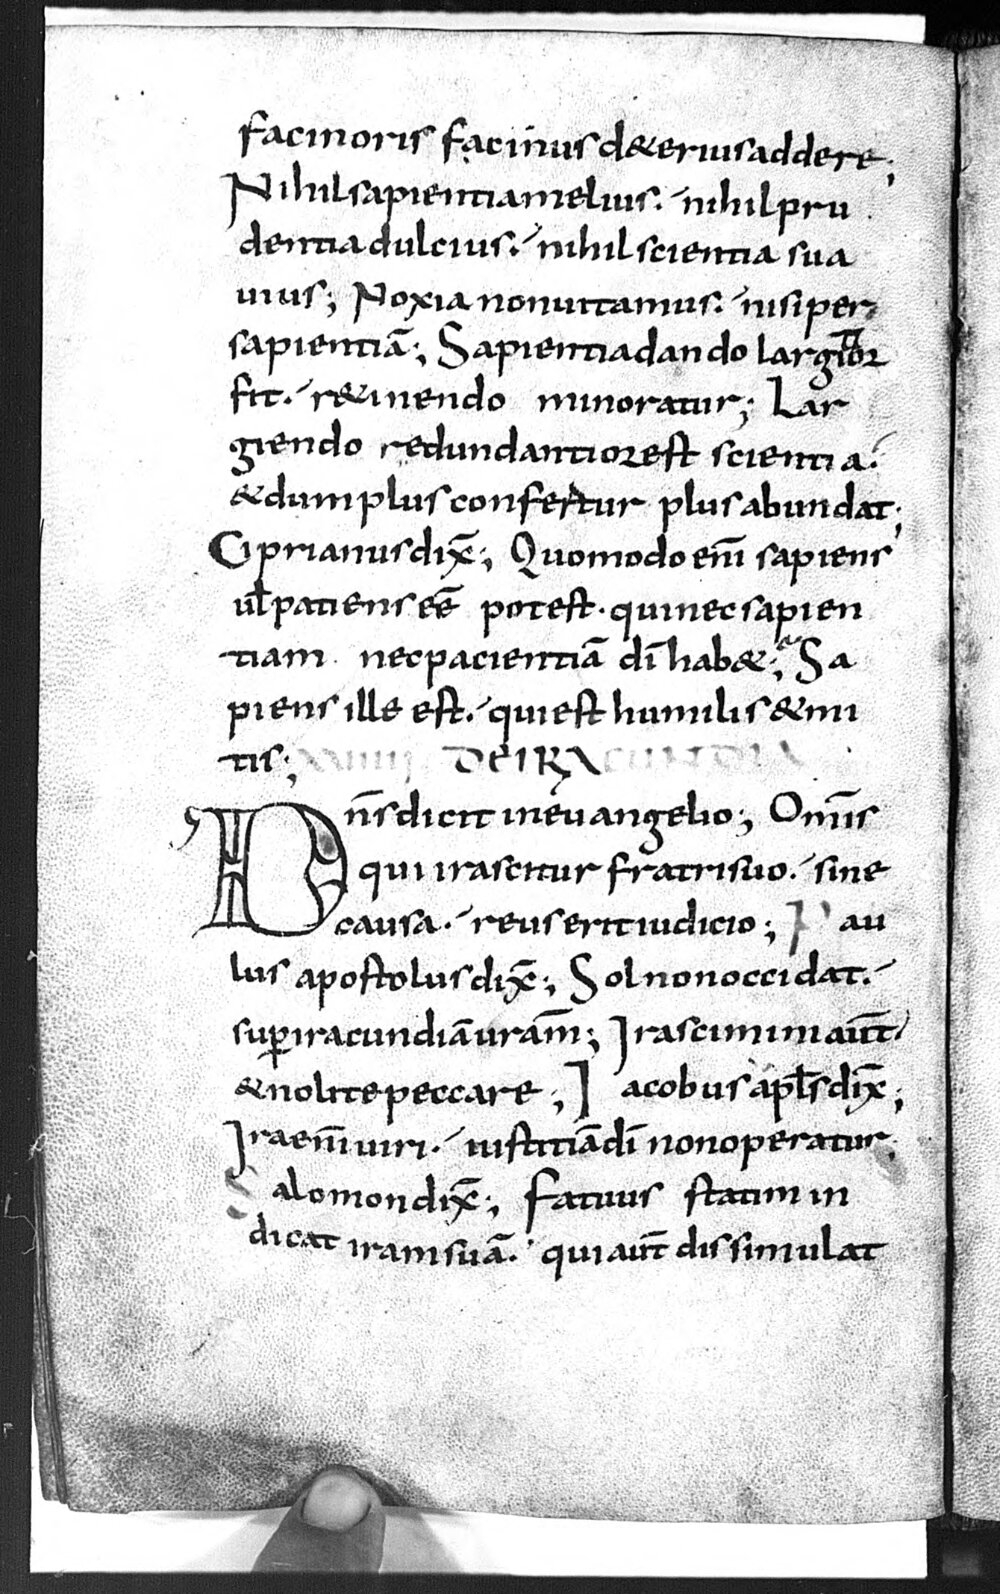 facinoris facinus d&eriusaddere;
Nihilsapientiamelius. nihilpru
dentiadulcius. nihilscientia sua
uius; Noxia nonuitamus. nisiper
sapientiā; Sapientiadando largior
fit. r&inendo minoratur; Lar
giendo redundantiorest scientia.
&dumplusconfertur plusabundat;
Ciprianusdix̄; Quomodo enī sapiens
ul̄patiens eē̄ potest. quinecsapien
tiam necpacientiā dī hab&; Sa
piens ille est. quiest humilis &mi
tis; XXIIII DEIRACUNDIA
Dn̄sdicit ineuangelio; Omīs
qui irascitur fratrisuo. sine
causa. reus eritiudicio; Pau
lus apostolusdix̄; Solnonoccidat.
sup̄iracundiāurām̄; Irasciminiaūt
&nolitepeccare; Iacobusapl̄sdix̄;
Iraenīuiri. iustitiādī nonoperatur
Salomondix̄; Fatuus statim in
dicat iramsuā. quiaūt dissimulat